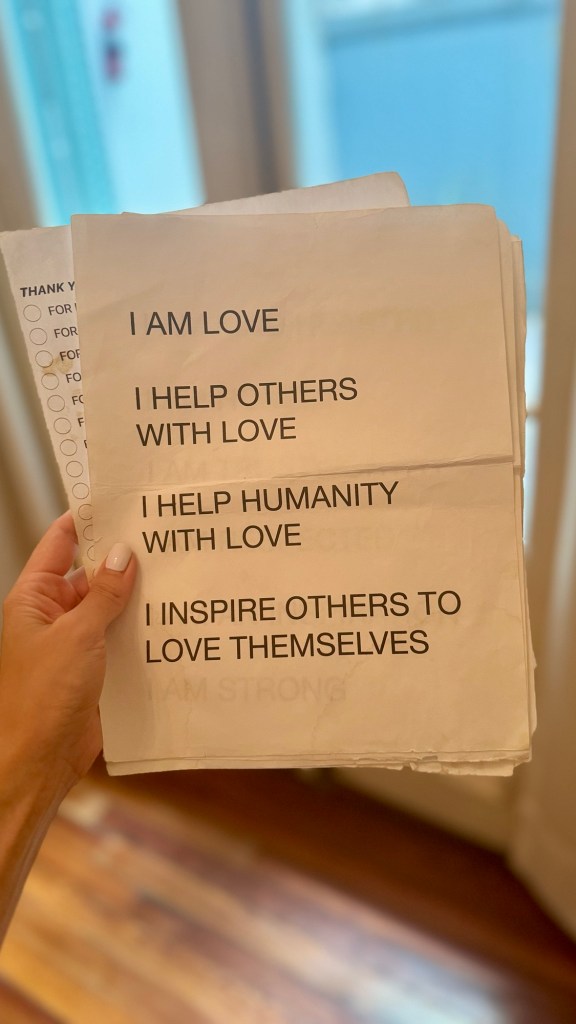 I AM LOVE
I HELP OTHERS
WITH LOVE
I HELP HUMANITY
WITH LOVE
I INSPIRE OTHERS TO
LOVE THEMSELVES
I AM STRONG
THANK Y
FOR
FOR
FOR
FO
FO
F
F